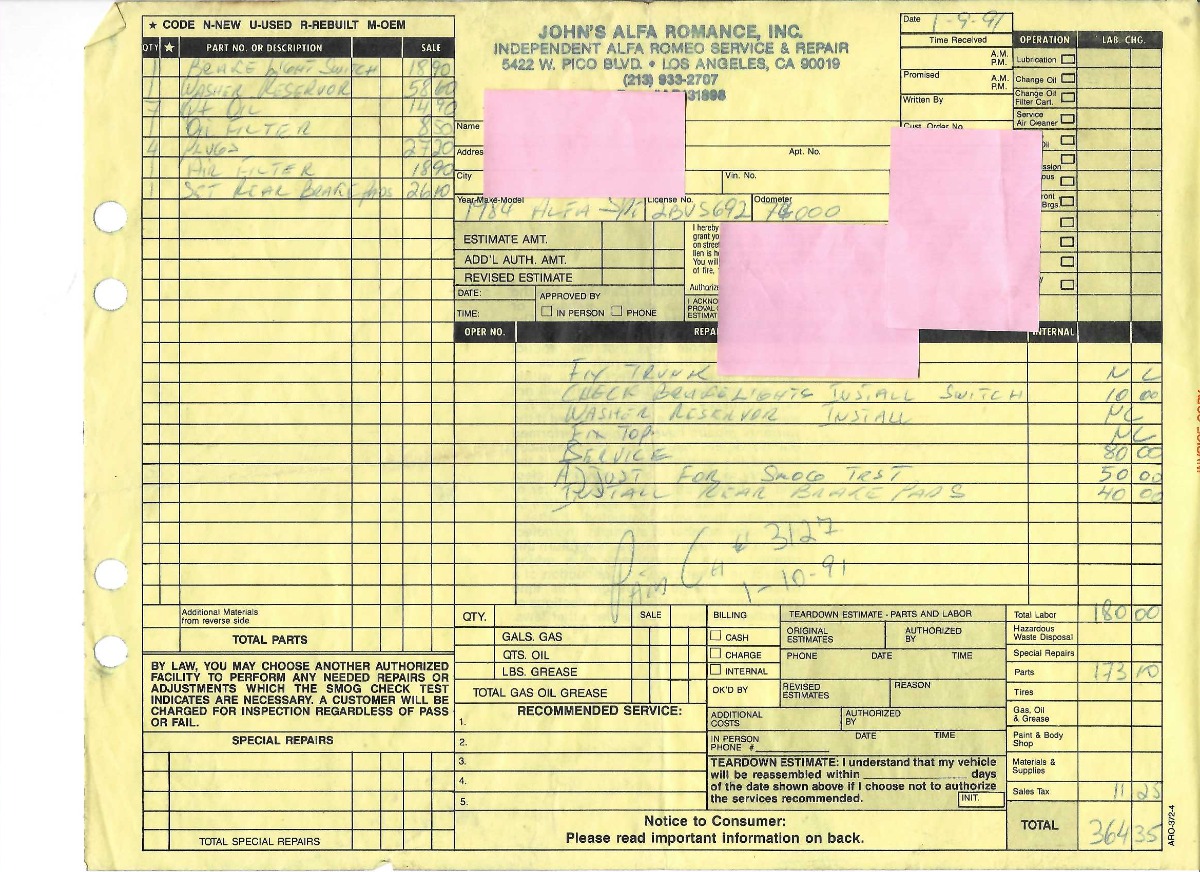 ★ CODE N-NEW U-USED R-REBUILT M-OEM
QTY ★ PART NO. OR DESCRIPTION SALE
1 BRAKE LIGHT SWITCH 18 90
1 WASHER RESERVOR 58 60
7 QT OIL 14 90
1 OIL FILTER 8 50
4 PLUGS 27 20
1 AIR FILTER 18 90
1 SET REAR BRAKE PADS 26 10
JOHN'S ALFA ROMANCE, INC.
INDEPENDENT ALFA ROMEO SERVICE & REPAIR
5422 W. PICO BLVD. • LOS ANGELES, CA 90019
(213) 933-2707
31898
Date 1-9-91
Time Received
A.M.
P.M.
Promised
A.M.
P.M.
Written By
Cust. Order No.
OPERATION LAB. CHG.
Lubrication
Change Oil
Change Oil
Filter Cart.
Service
Air Cleaner
Name
Addres
Apt. No.
City
Vin. No.
Year-Make-Model License No. Odometer
1984 ALFA 2BVS692 000
ESTIMATE AMT.
ADD'L AUTH. AMT.
REVISED ESTIMATE
DATE:
TIME:
APPROVED BY
IN PERSON PHONE
I hereby
grant yo
on street
lien is he
You will
of fire,
Authoriz
I ACKNO
PROVAL O
ESTIMAT
OPER NO. REPA INTERNAL
FIX TRUNK NC
CHECK BRAKELIGHTS INSTALL SWITCH 10 00
WASHER RESERVOR INSTALL NC
FIX TOP NC
SERVICE 80 00
ADJUST FOR SMOG TEST 50 00
INSTALL REAR BRAKE PADS 40 00
CH # 3127
1-10-91
Additional Materials
from reverse side
TOTAL PARTS
BY LAW, YOU MAY CHOOSE ANOTHER AUTHORIZED
FACILITY TO PERFORM ANY NEEDED REPAIRS OR
ADJUSTMENTS WHICH THE SMOG CHECK TEST
INDICATES ARE NECESSARY. A CUSTOMER WILL BE
CHARGED FOR INSPECTION REGARDLESS OF PASS
OR FAIL.
SPECIAL REPAIRS
TOTAL SPECIAL REPAIRS
QTY. SALE
GALS. GAS
QTS. OIL
LBS. GREASE
TOTAL GAS OIL GREASE
RECOMMENDED SERVICE:
1.
2.
3.
4.
5.
BILLING
CASH
CHARGE
INTERNAL
OK'D BY
TEARDOWN ESTIMATE - PARTS AND LABOR
ORIGINAL
ESTIMATES
AUTHORIZED
BY
PHONE DATE TIME
REVISED
ESTIMATES
REASON
ADDITIONAL
COSTS
AUTHORIZED
BY
IN PERSON
PHONE #
DATE TIME
TEARDOWN ESTIMATE: I understand that my vehicle
will be reassembled within ____ days
of the date shown above if I choose not to authorize
the services recommended.
INIT.
Notice to Consumer:
Please read important information on back.
Total Labor 180 00
Hazardous
Waste Disposal
Special Repairs
Parts 173 10
Tires
Gas, Oil
& Grease
Paint & Body
Shop
Materials &
Supplies
Sales Tax 11 25
TOTAL 364 35
ARO-372-4
INVOICE COPY